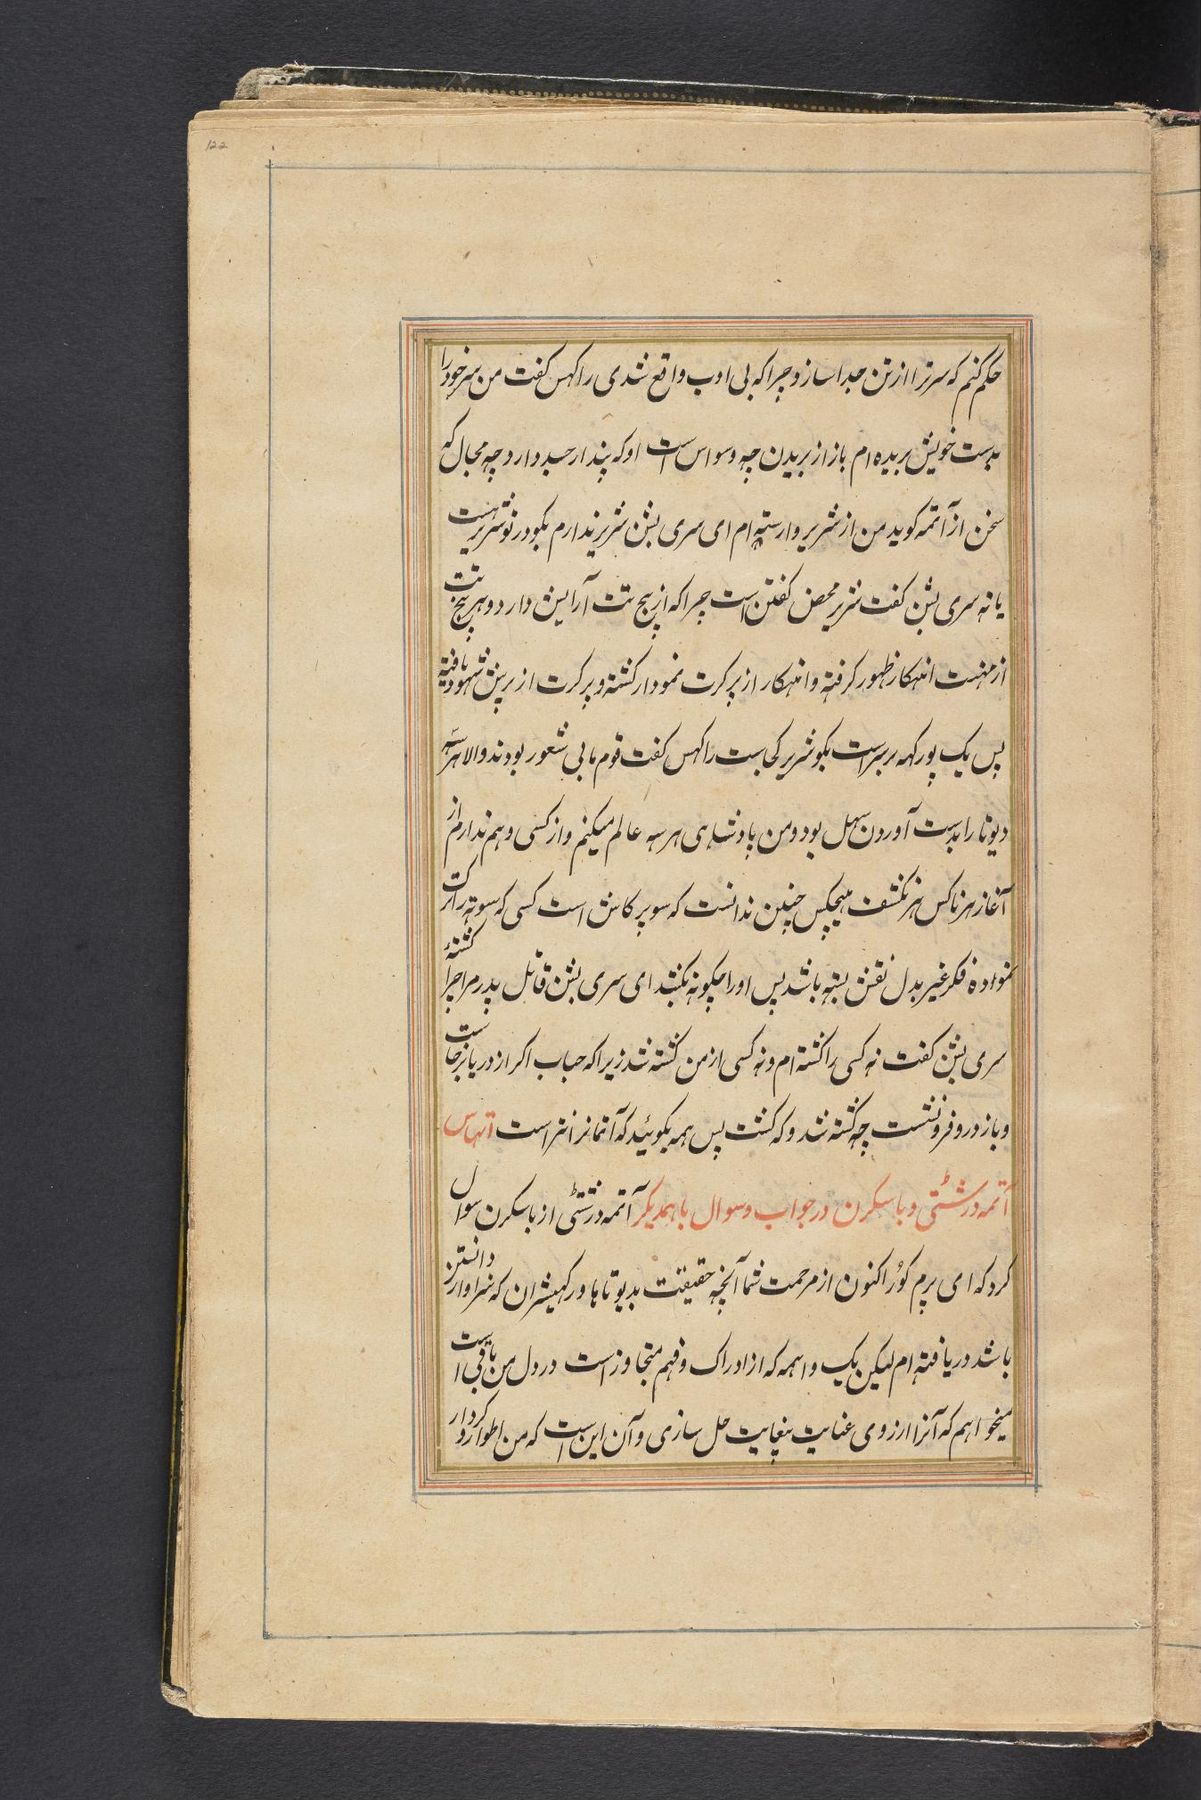 122
حکم کنم که سر ترا از تن جدا سازد چرا که بی ادب واقع شدی راکهس کفت من سر خود را
بدست خویش بریده ام باز از بریدن چه وسواس است او که پندار جسد دارد چه مجال که
سخن از آتمه کوید من از شریر وارسته ام ای سری بشن شریر ندارم بکو در تو شریر هست
یا نه سری بشن کفت شریر محض کفتن است چرا که از پنج تت آرایش دارد و هر پنج تت
از مهتت انهکار ظهور کرفته و انهکار از پرکرت نمودار کشته و پرکرت از پرش شهود یافته
پس یک پورکهه بر سر است بکو شریر کجاست راکهس کفت قوم ما بی شعور بودند والا هر سه
دیوتا را بدست آوردن سهل بود و من پادشاهی هر سه عالم میکنم و از کسی وهم ندارم از
آغاز هرناکس هرنکشف هیچکس چنین ندانست که سوپرکاش است کسی که سوته را ترک
نمواده فکر غیر بدل نقش بسته باشد پس اورا چکونه نکشد ای سری بشن قاتل پدر مرا چرا کشتهٔ
سری بشن کفت نه کسی را کشته ام و نه کسی از من کشته شد زیرا که حباب اکر از دریا برخاست
و باز درو فرو نشست چه کشته شد و که کشت پس همه بکوئید که آتما نرانتر است اتهاس
آتمه درشتی و باسکرن در جواب و سوال باهمدیکر آتمه درشتی از باسکرن سوال
کرد که ای پرم کور اکنون از مرحمت شما آنچه حقیقت بدیوتاها و رکهیشران که سزاوار دانستن
باشد دریافته ام لیکن یک واهمه که از ادراک و فهم متجاوز است در دل من باقی است
میخواهم که آنرا از روی عنایت بنهایت حل سازی و آن این است که من اطوار و کردار